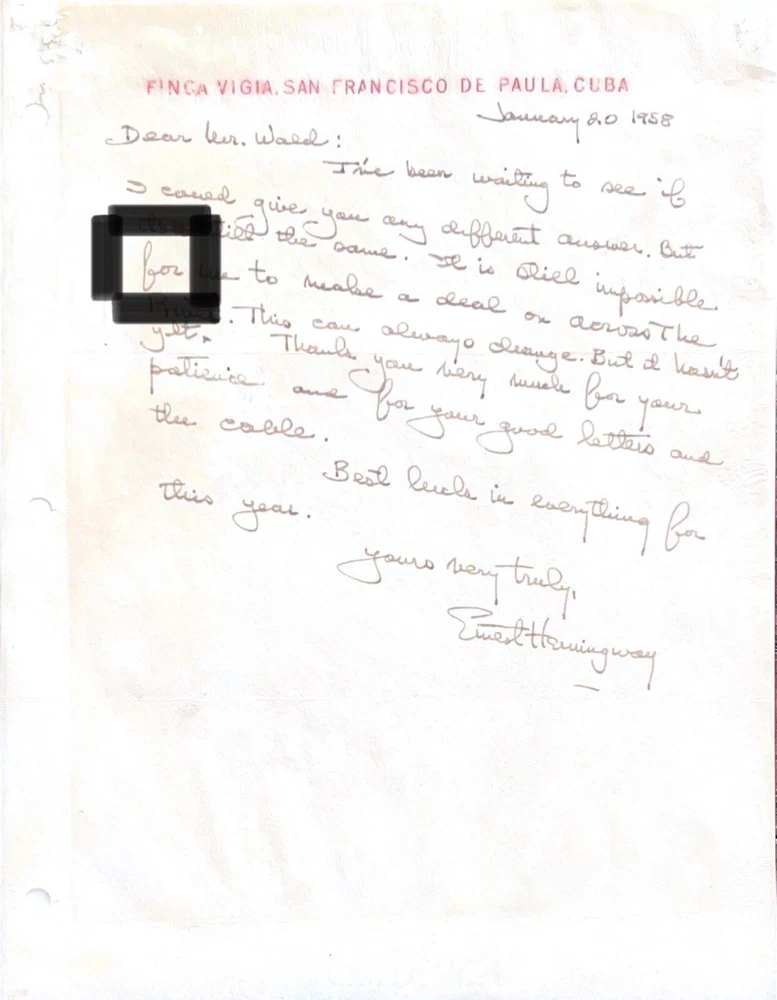 FINCA VIGIA, SAN FRANCISCO DE PAULA, CUBA
January 20 1958
Dear Mr. Wald:
I've been waiting to see if
I could give you any different answer. But
still the same. It is still impossible
for me to make a deal on across The
River. This can always change. But it hasn't
yet. Thank you very much for your
patience and for your good letters and
the cable.
Best luck in everything for
this year.
Yours very truly,
Ernest Hemingway